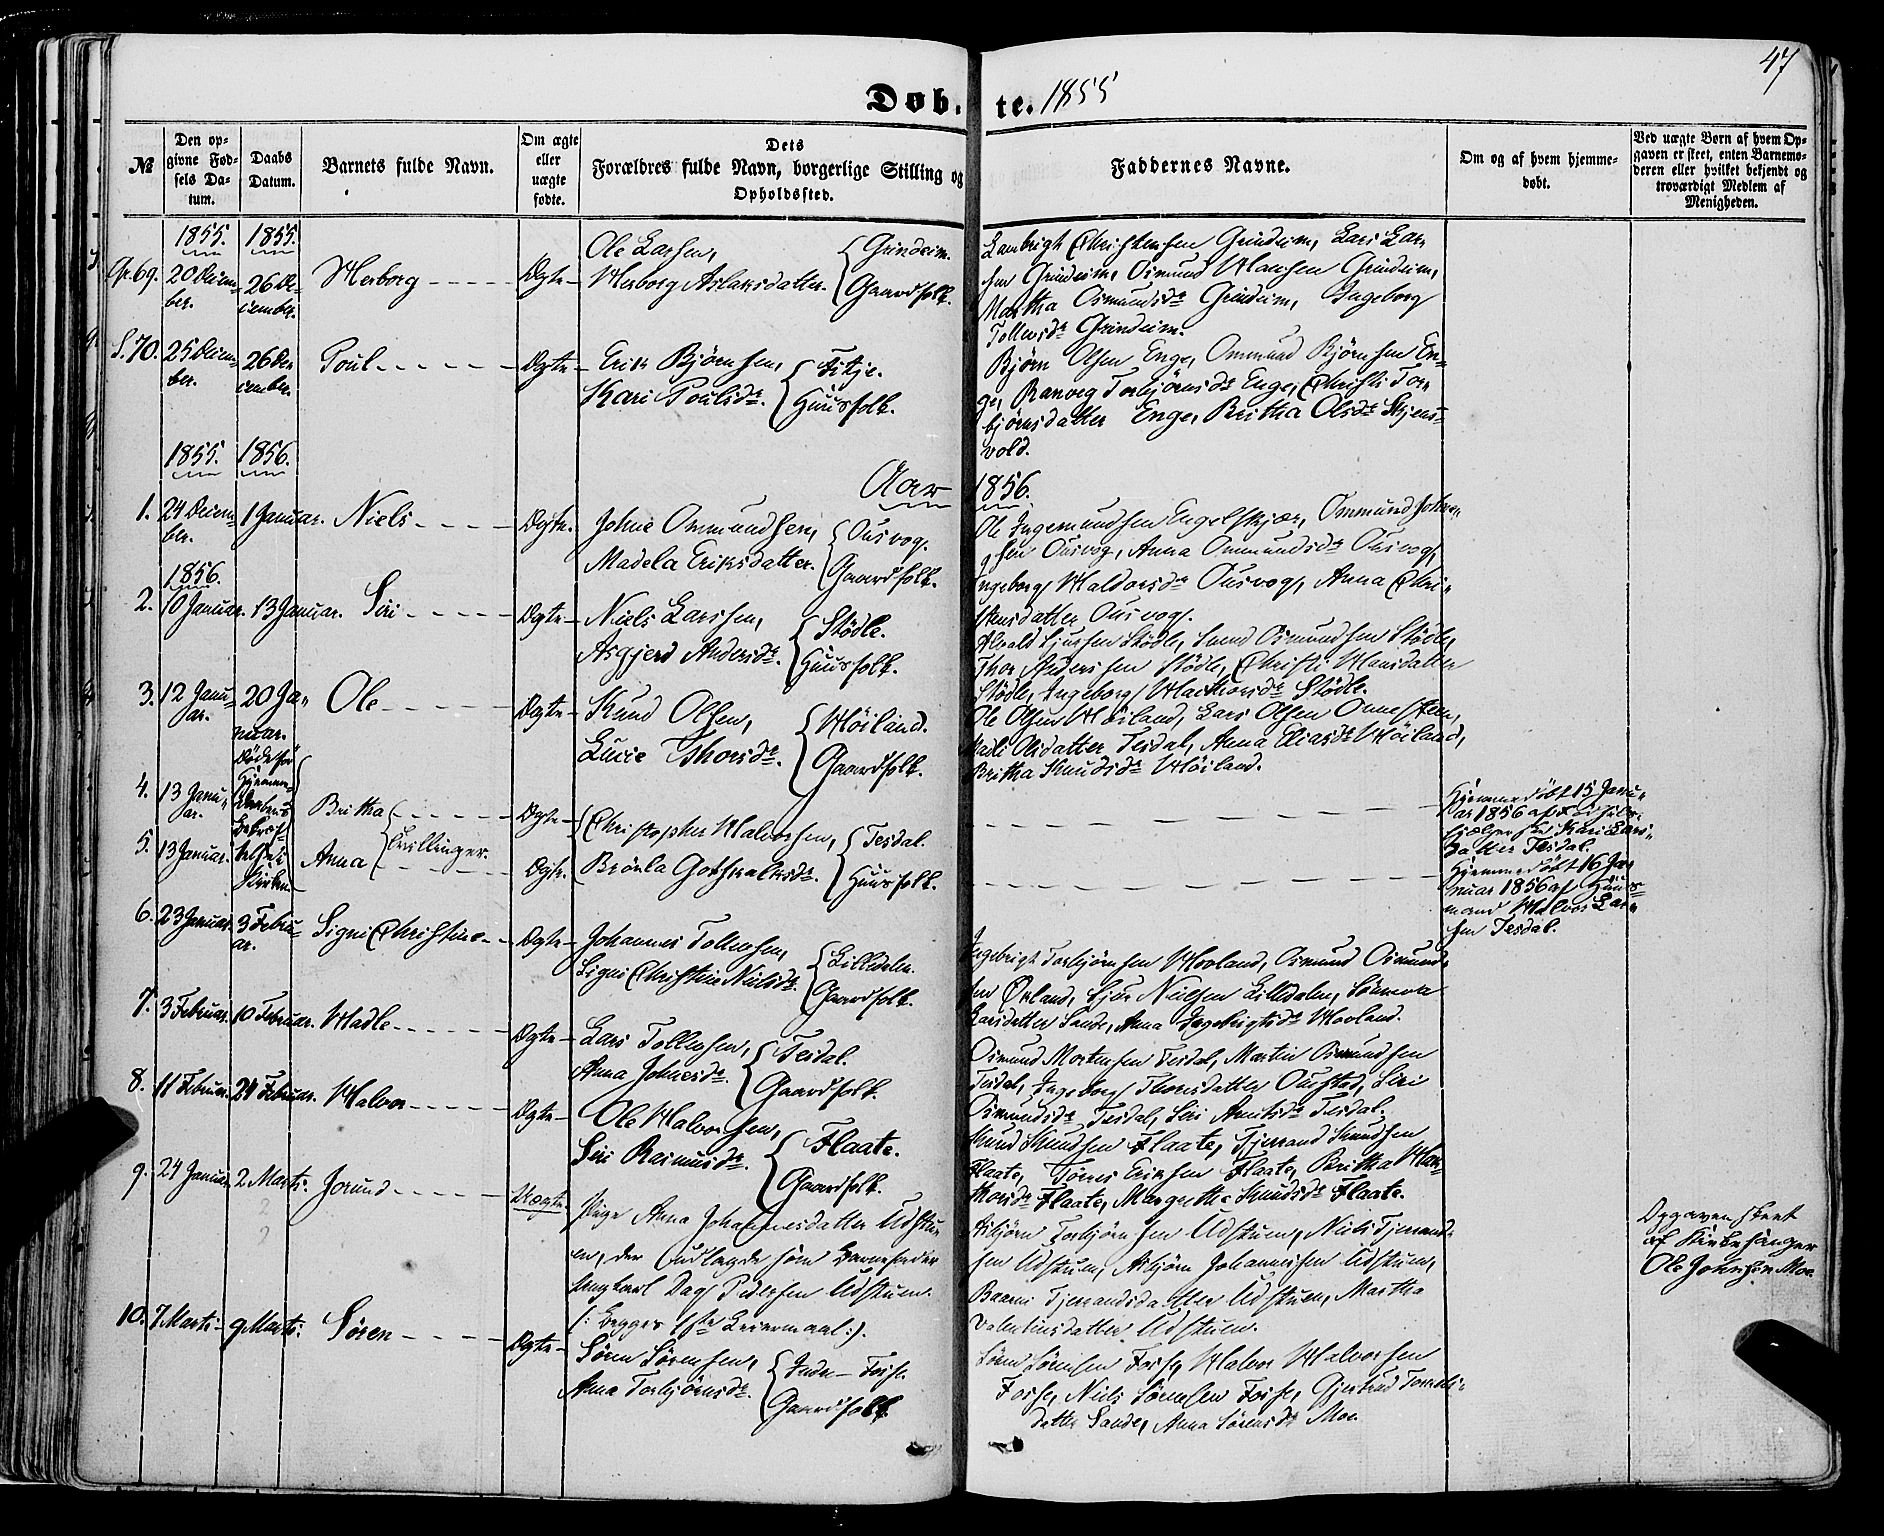 47
Døb- te. 1855
№
Den op-
givne Fød-
sels Da-
tum.
Daabs
Datum.
Barnets fulde Navn.
Om ægte
eller
uægte
fødte.
Dets
Forældres fulde Navn, borgerlige Stilling og
Opholdssted.
Faddernes Navne.
Om og af hvem hjemme-
døbt.
Ved uægte Børn af hvem Op-
gaven er skeet, enten Barnemo-
deren eller hvilket bekjendt og
troværdigt Medlem af
Menigheden.
1855. 1855.
69. 20 Decem-
ber. 26 De-
cember. Herborg Ægte
Ole Larsen,
Herborg Aslaksdatter. Grindeim.
Gaardfolk.
Lambrigt Christensen Grindeim, Lars Lar-
sen Grindeim, Osmund Hansen Grindeim,
Martha Osmundsdr Grindeim, Ingeborg
Tollevsdr Grindeim.
S. 70. 25 Decem-
ber. 26 De-
cember. Poul Ægte
Erik Bjørnsen,
Kari Poulsdr. Fitje.
Huusfolk.
Bjørn Olsen Enge, Ommund Bjørnsen En-
ge, Ranveg Torbjørnsdr Enge, Christi Tor-
bjørnsdatter Enge, Britha Olsdr Skjens-
vold.
1855. 1856.
Aar 1856.
1. 24 Decem-
ber. 1 Januar. Niels Ægte.
Johne Ommundsen,
Madela Eriksdatter. Ousvog.
Gaardfolk.
Ole Ingemundsen Engelskjær, Ommund Johne-
sen Ousvog, Anna Ommundsdr Ousvog,
Ingeborg Haldorsdr Ousvog, Anna Chri-
stensdatter Ousvog.
1856.
2. 10 Januar. 13 Januar. Siri Ægte
Niels Larssen,
Asgjerd Andersdr. Stødle.
Huusfolk.
Sjursen Stødle, Svend Osmundsen Stødle,
Thor Anderssen Stødle, Christi Hansdatter
Stødle, Ingeborg Stødle.
3. 12 Janu-
ar. 20 Ja-
nuar. Ole Ægte
Knud Olsen,
Lucie Thorsdr. Høiland.
Gaardfolk.
Ole Olsen Høiland, Lars Olsen
Olsdatter Tesdal, Anna Eliasdr Høiland,
Britha Knudsdr Høiland.
4. 13 Janu-
ar. Døde før
Hjemme-
daabens
Bekræf-
telse i
Kirken Britha
5. 13 Januar. Anna Tvillinger. Ægte
Ægte.
Christopher Halvorsen,
Brönla Gothskalksdr. Tesdal.
Huusfolk.
Hjemmedöbt 15 Janu-
ar 1856 af
Kari Lars-
datter Tesdal.
Hjemmedöbt 16 Ja-
nuar 1856 af Huus-
mand Halvor Lar-
sen Tesdal.
6. 23 Januar. 3 Febru-
ar. Signi Christine Ægte
Johannes Tollevsen,
Signi Christine Nielsdr. Lilledalen.
Gaardfolk.
Ingebrigt Torbjørnsen Hovland, Osmund Osmund-
sen Ørland, Sjur Nielsen Lilledalen, Sönneva
Larsdatter Sande, Anna Ingebrigtsdr Hovland.
7. 3 Februar. 10 Februar. Hadle Ægte
Lars Tollevsen,
Anna Johnesdr. Tesdal.
Gaardfolk.
Osmund Mortensen Tesdal, Martin Osmundsen
Tesdal, Ingeborg Thorsdatter Oustad, Siri
Osmundsdr Tesdal, Siri Tesdal.
8. 11 Februar. 24 Februar. Halvor Ægte
Ole Halvorsen,
Siri Rasmusdr. Flaate.
Gaardfolk.
Knud Knudsen Flaate, Tjerrand Knudsen
Flaate, Tørres Eriksen Flaate, Britha
Flaate, Margrethe Knudsdr Flaate.
9. 24 Januar. 2 Marts. Jorund Uægte
Pige Anna Johannesdatter Udstu-
en, der udlagde som Barnefader
Ungkarl Dag Pedersen Udstuen.
(: begges 1ste Leiermaal :).
Asbjörn Torbjørnsen Udstuen, Niels Tjerrand-
sen Udstuen, Asbjörn Johannesen Udstuen,
Tjerrandsdatter Udstuen, Martha
Valentinsdatter Udstuen.
Opgaven skeet
af Kirkesanger
Ole Johnsen Moe.
10. 7 Marts. 9 Marts. Sören Ægte
Sören Sörensen,
Anna Torbjørnsdr. Indre Fosse.
Gaardfolk.
Sören Sörensen Fosse, Halvor Halvorsen
Fosse, Niels Sörensen Fosse, Gjertrud
datter Sande, Anna Sörensdr Moe.